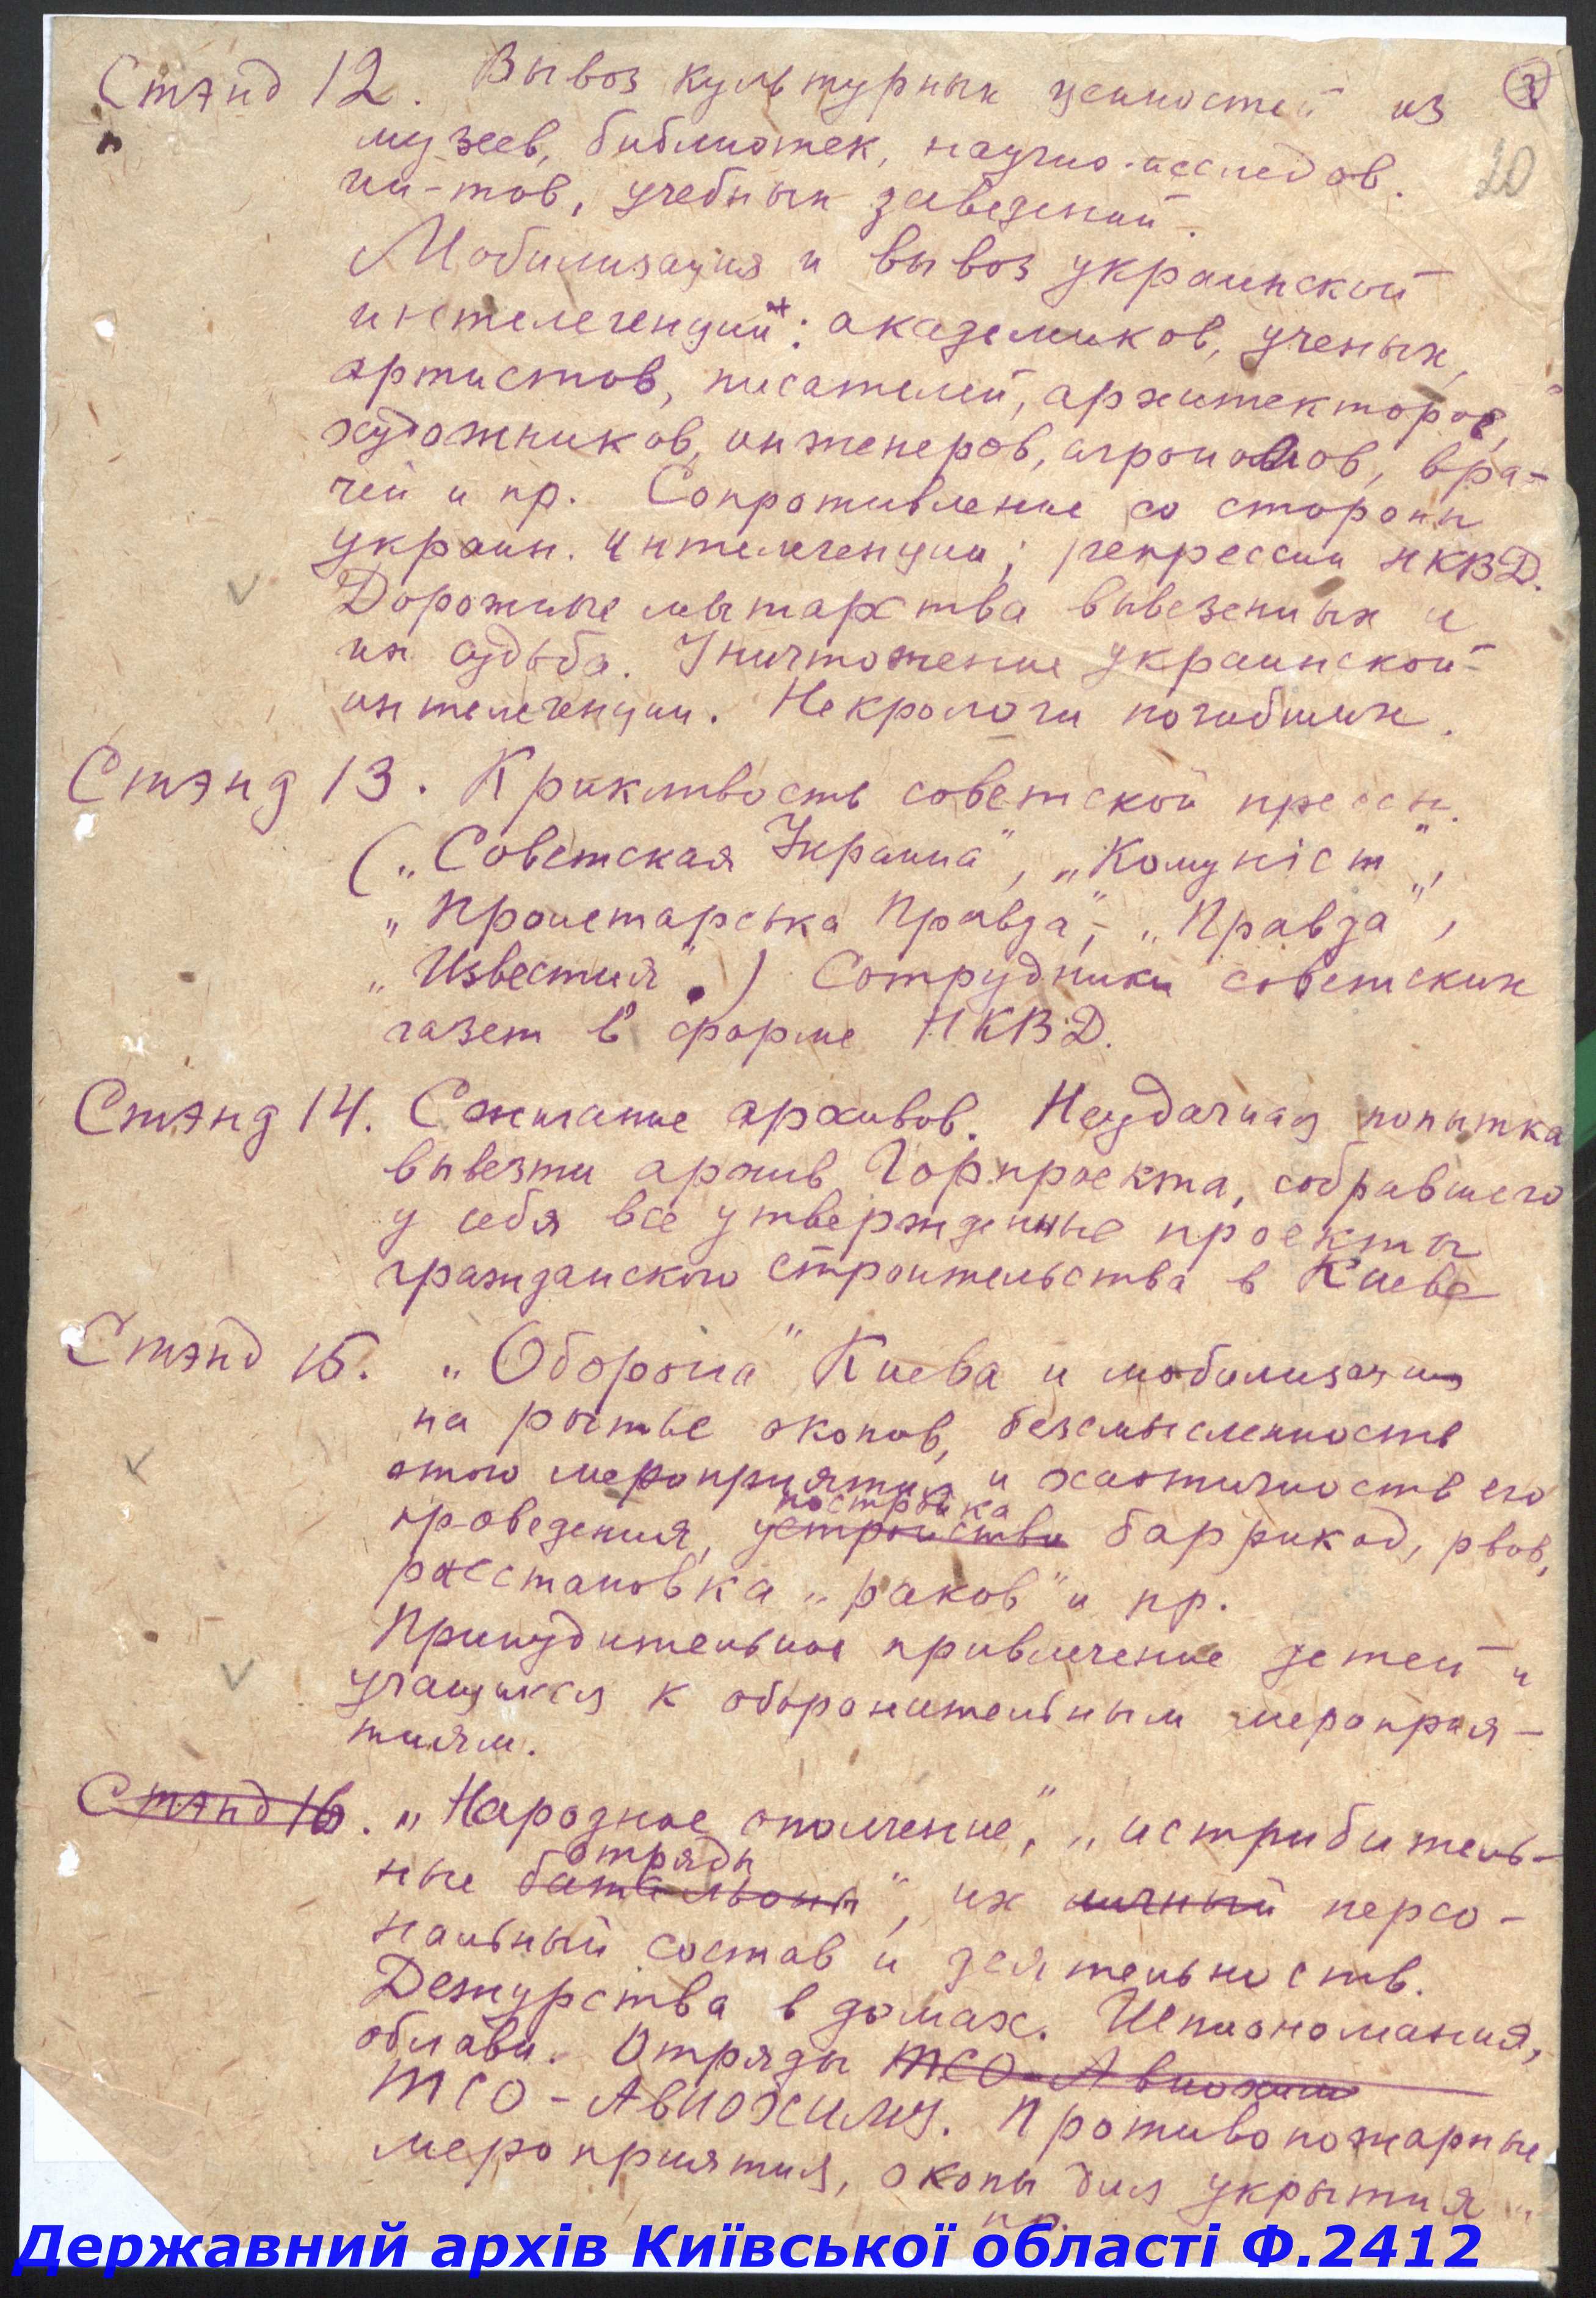 Стэнд 12. Вывоз культурных ценностей из
3
музеев, библиотек, научно-исследов.
20
ин-тов, учебных заведений.
Мобилизация и вывоз украинской
интелегенции: академиков, ученых,
артистов, писателей, архитекторов,
художников, инженеров, агрономов, вра-
чей и пр. Сопротивление со стороны
украин. интелегенции; репрессии НКВД.
Дорожные мытарства вывезенных и
их судьба. Уничтожение украинской
интелегенции. Некрологи погибших.
Стэнд 13. Крикливость советской прессы.
(„Советская Украина", „Комуніст",
„Пролетарська Правда", „Правда",
„Известия".) Сотрудники советских
газет в форме НКВД.
Стэнд 14. Сжигание архивов. Неудачная попытка
вывезти архив Горпроекта, собравшего
у себя все утвержденные проекты
гражданского строительства в Киеве
Стэнд 15. „Оборона" Киева и мобилизация
на рытье окопов, безсмысленность
этого мероприятия и хаотичность его
постройка
проведения, устройства баррикад, рвов,
расстановка „раков" и пр.
Принудительное привлечение детей и
учащихся к оборонительным мероприя-
тиям.
Стэнд 16. „Народное ополчение", „истребитель-
отряды
ные батальоны", их личный персо-
нальный состав и деятельность.
Дежурства в домах. Шпиономания,
облавы. Отряды ТСО-Авиохим
ТСО-Авиохиму. Противопожарные
мероприятия, окопы для укрытия и
пр.
Державний архів Київської області Ф.2412